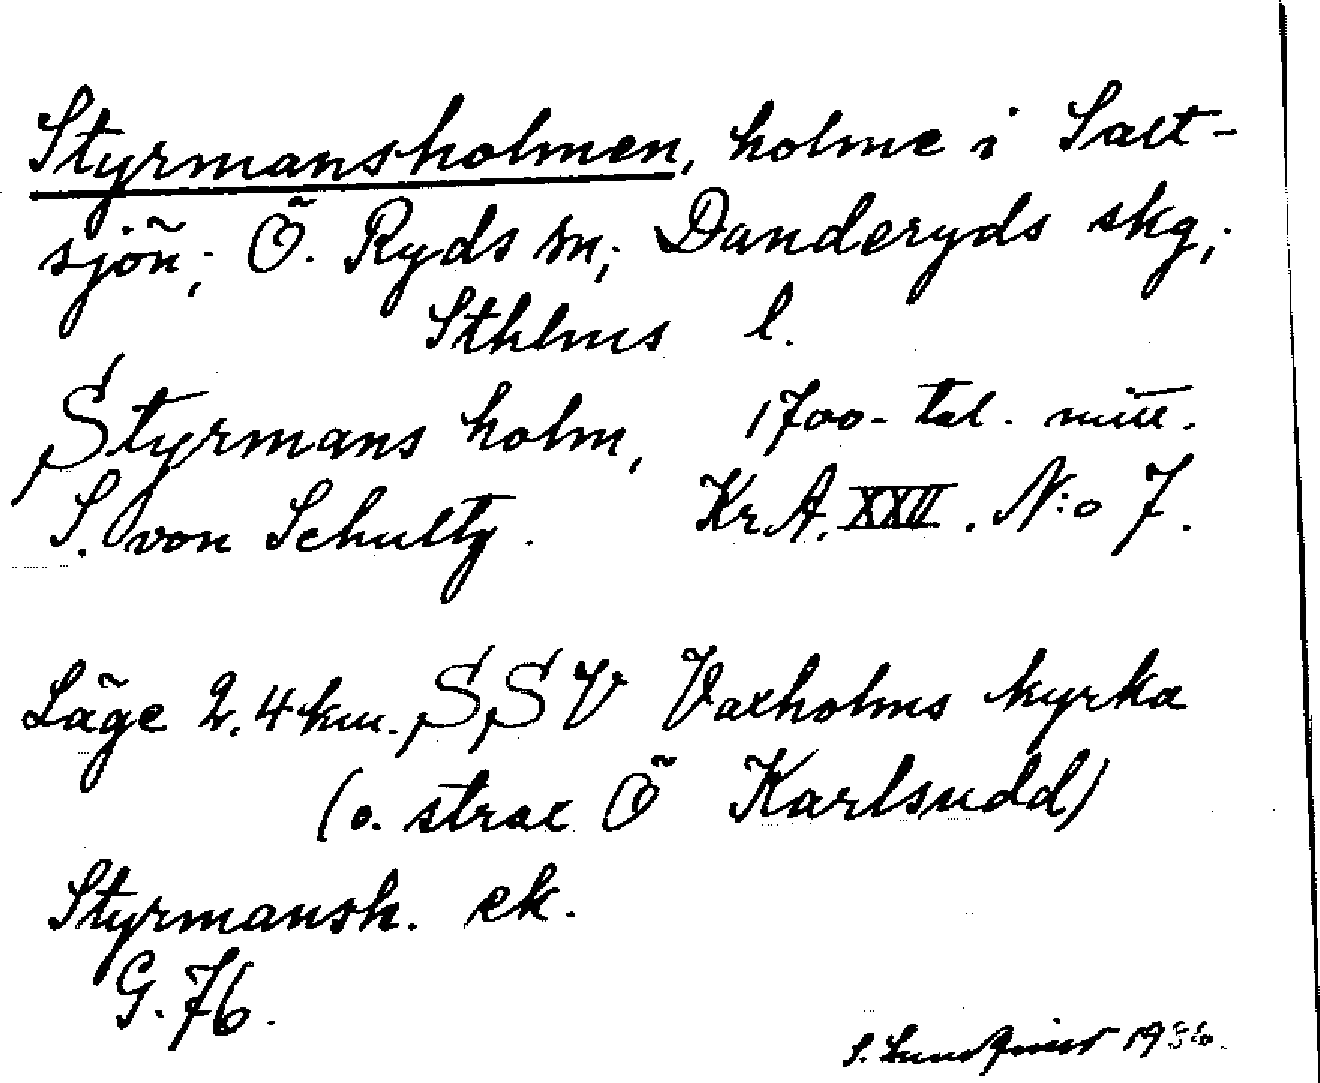 Styrmansholmen, holme i Salt-
sjön; Ö. Ryds sn; Danderyds skg;
Sthlms l.
Styrmans holm, 1700-tal. mitt.
S. von Schultz. KrA. XXII. N:o 7.
Läge 2.4 km. SSV Vaxholms kyrka
(o. strax Ö Karlsudd)
Styrmansh. ek.
G. 76.
S. Lundqvist